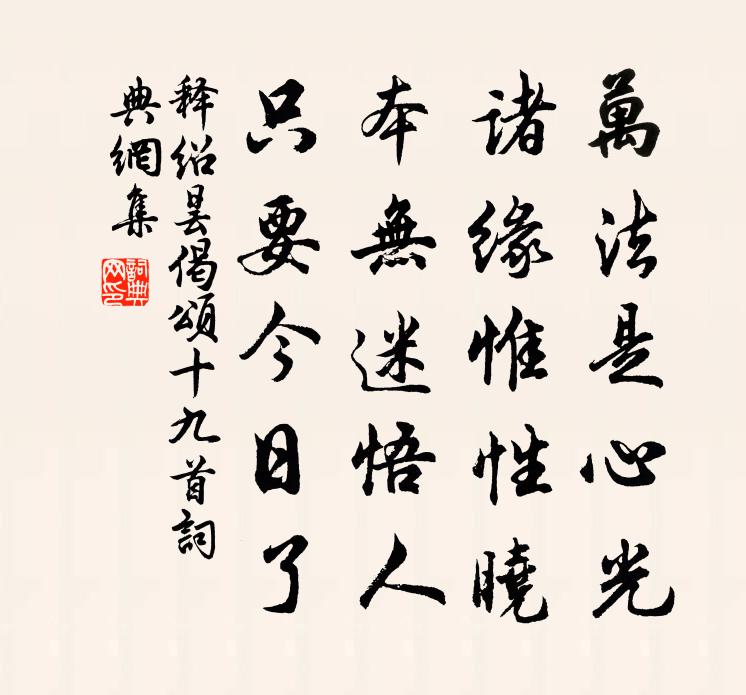 萬法是心光
諸緣惟性曉
本無迷悟人
只要今日了
释紹曇偈頌十九首詞
典網集
詞典網印